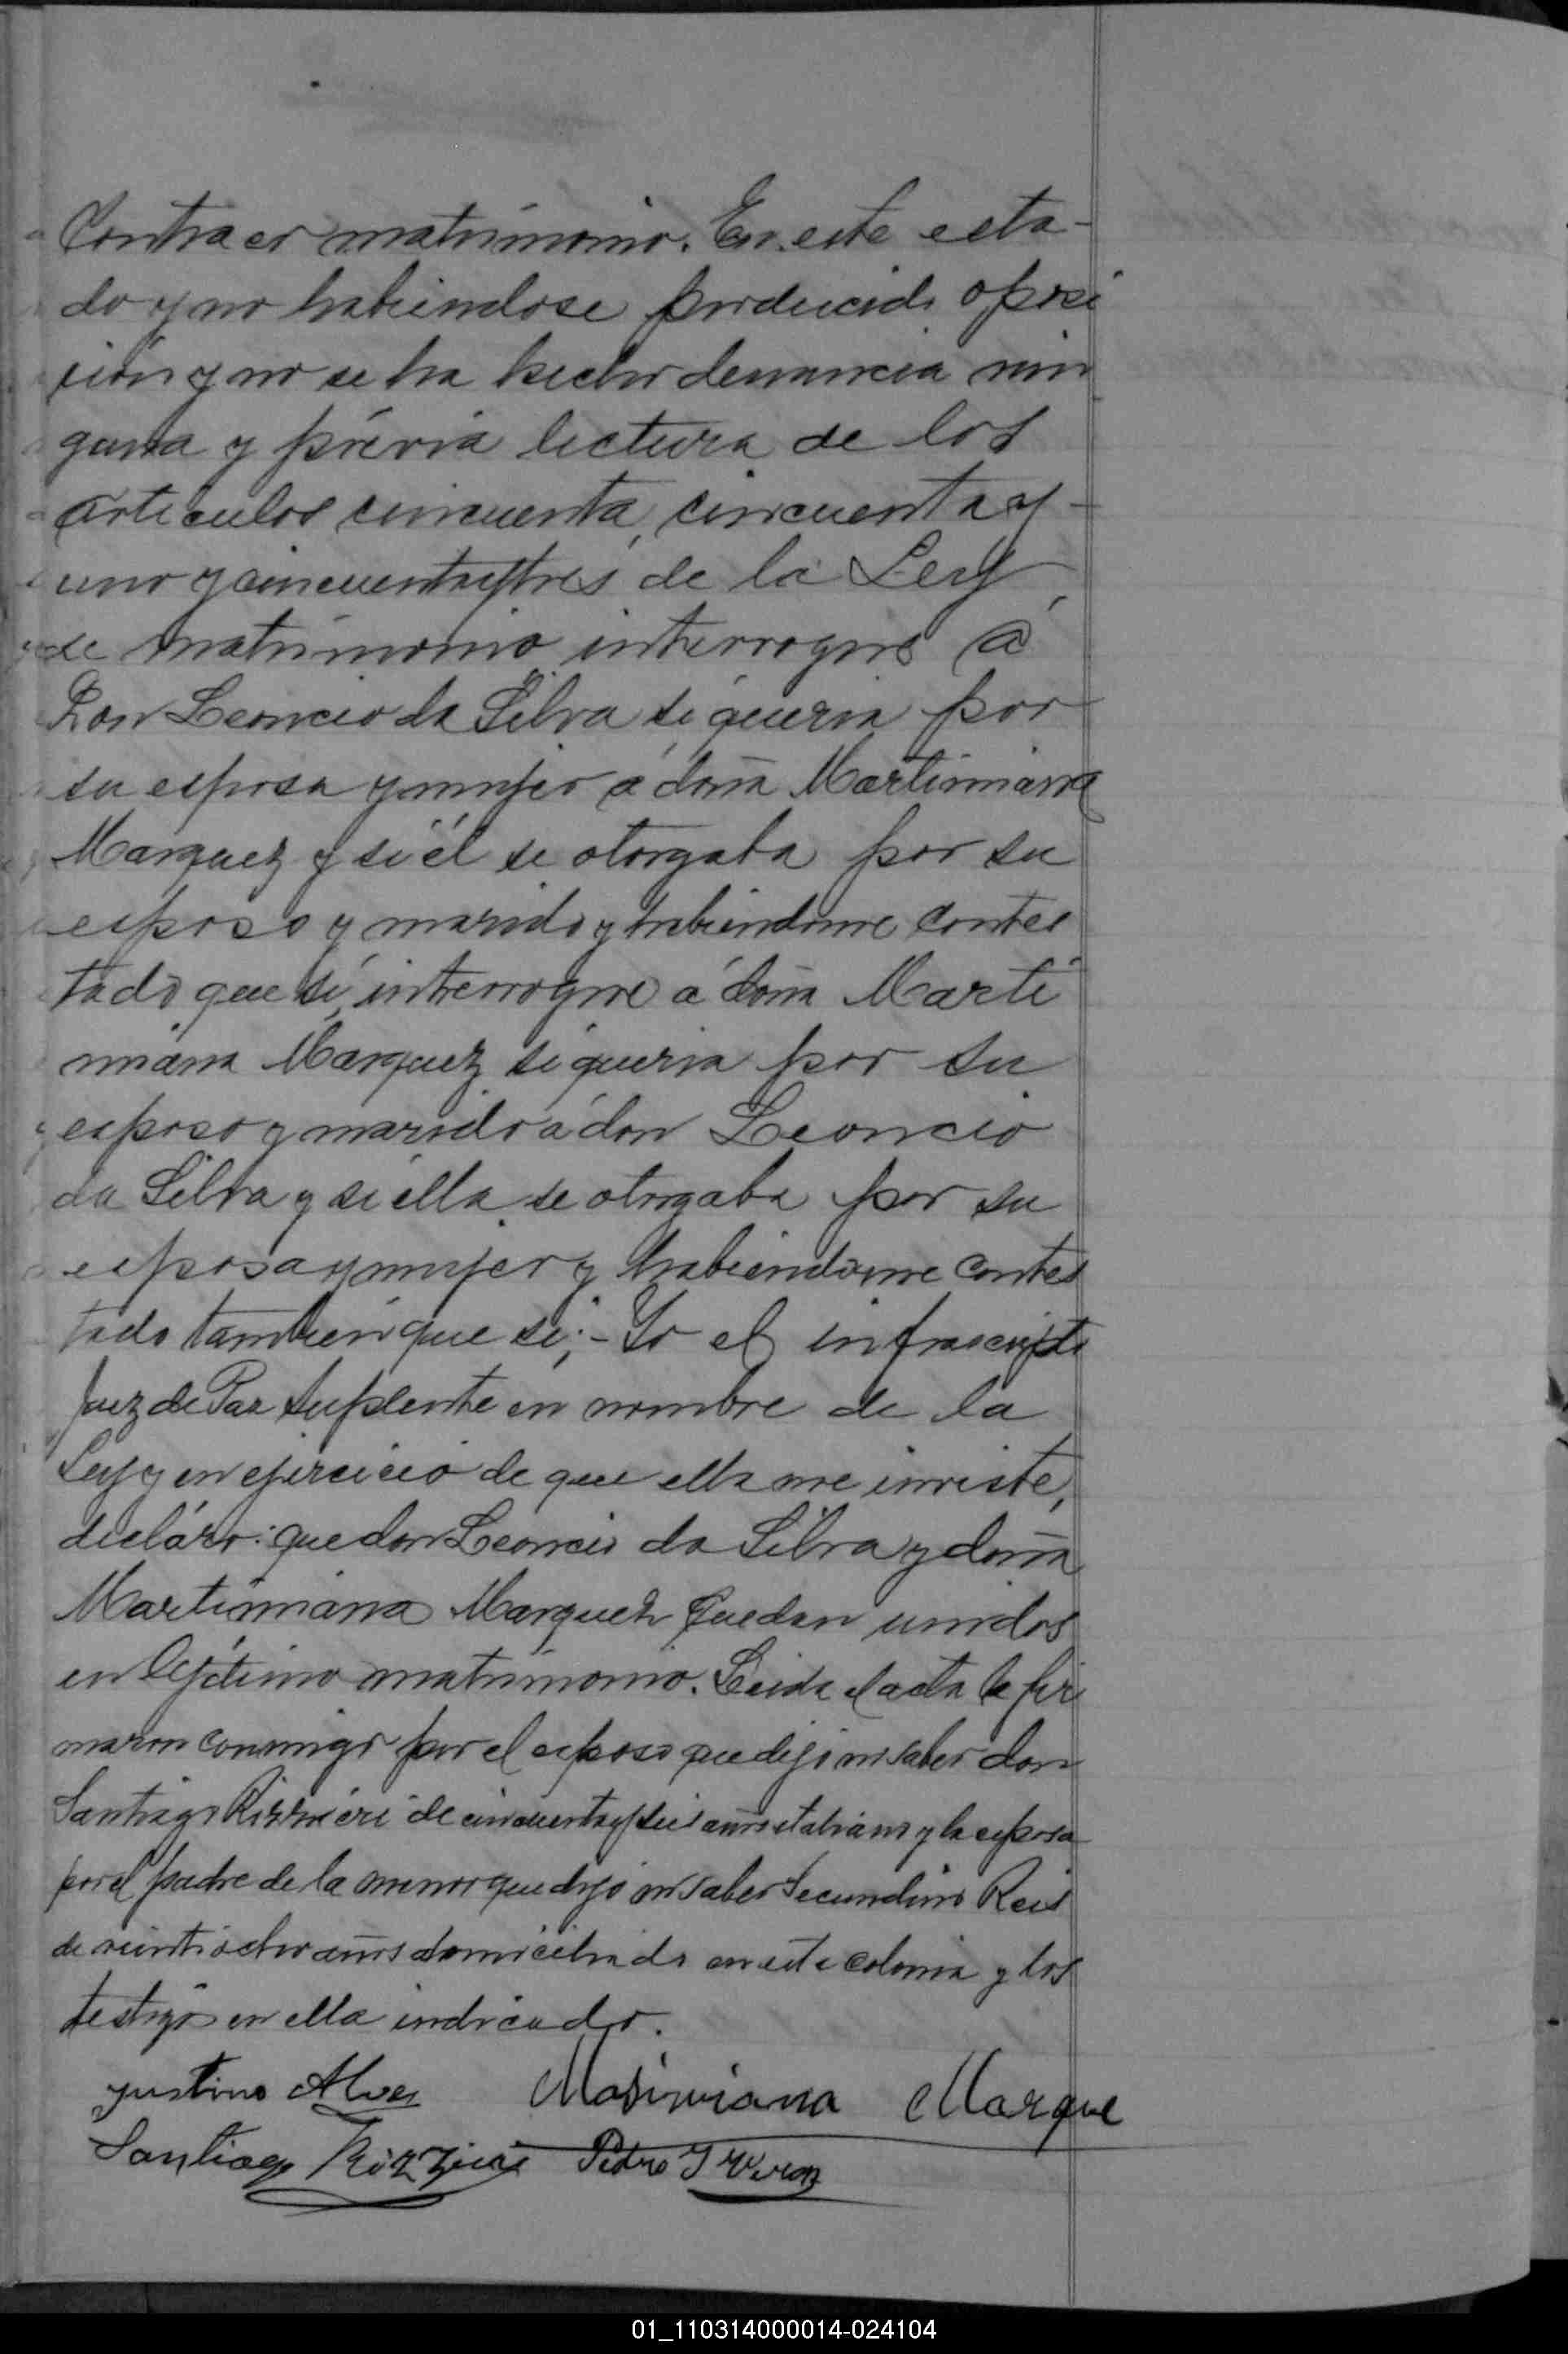 Contraer matrimonio. En este esta-
do y no habiendose producido oposi
ción y no se ha hecho denuncia nin
guna y prévia lectura de los
articulos cincuenta, cincuenta y
uno y cincuenta y tres de la Ley
de matrimonio interrogué á
Don Leoncio da Silva si queria por
su esposa y mujer á doña Martiniana
Marquez y si él se otorgaba por su
esposo y marido y habiendome contes
tado que si, interrogué á doña Marti
niana Marquez si queria por su
esposo y marido á don Leoncio
da Silva y si ella se otorgaba por su
esposa y mujer y habiendome contes
tado tambien que si;- Yo el infrascripto
Juez de Paz Suplente en nombre de la
Ley y en ejercicio de que ella me inviste,
decláro: que don Leoncio da Silva y doña
Martiniana Marquez quedan unidos
en lejítimo matrimonio. Leida el acta la fir
maron conmigo por el esposo que dijo no saber don
Santiago Rizzieri de cincuenta y seis años italiano y la esposa
por el padre de la menor que dijo no saber Secundino Reis
de veintiocho años domiciliado en esta colonia y los
testigos en ella indicado.
Justino Alves Matiniana Marque
Santiago Rizzieri Pedro J
01_110314000014-024104